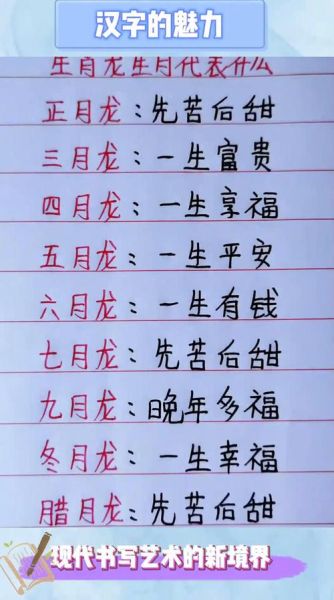 汉字的魅力
生肖龙生月代表什么
正月龙：先苦后甜
三月龙：一生富贵
四月龙：一生享福
五月龙：一生平安
六月龙：一生有钱
七月龙：先苦后甜
九月龙：晚年多福
冬月龙：一生幸福
腊月龙：先苦后甜
现代书写艺术的新境界